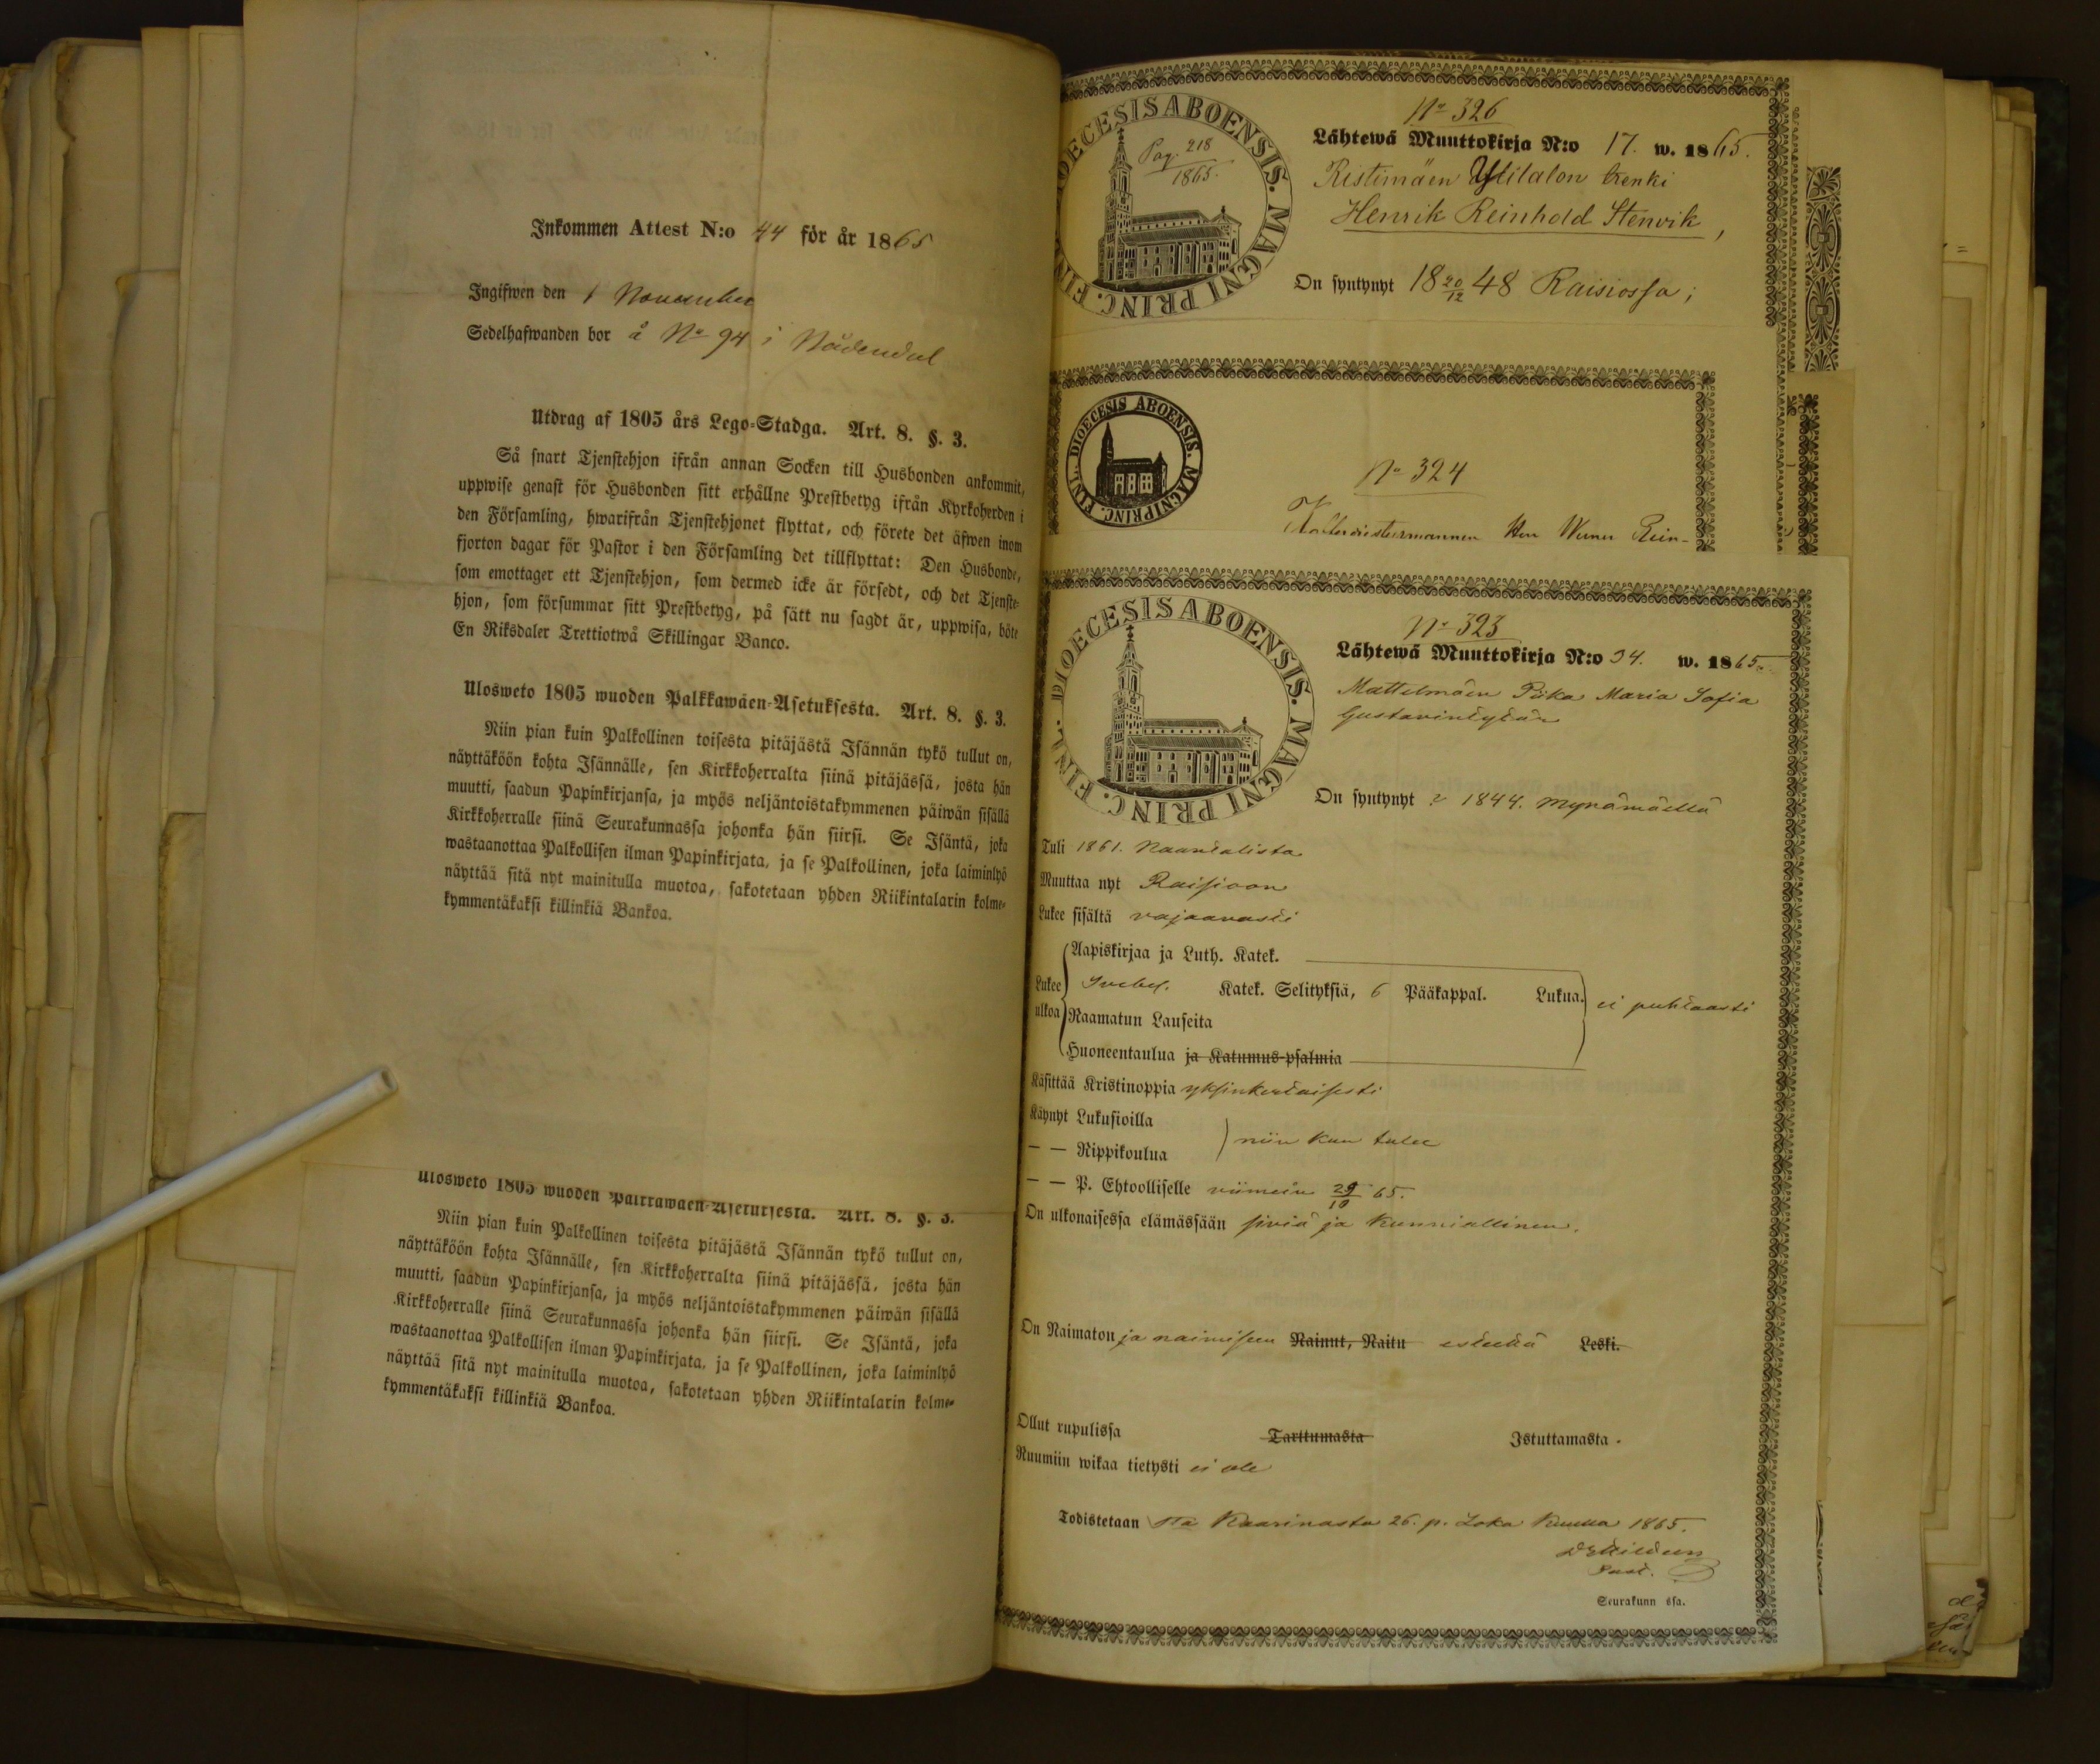 Inkommen Attest N:o 44 för år 1865
Ingifwen den 1 November
Sedelhafwanden bor å No 94 i Nådendal
Utdrag af 1805 års Lego-Stadga. Art. 8. §. 3.
Så snart Tjenstehjon ifrån annan Socken till Husbonden ankommit,
uppwise genast för Husbonden sitt erhållne Prestbetyg ifrån Kyrkoherden i
den Församling, hwarifrån Tjenstehjonet flyttat, och förete det äfwen inom
fjorton dagar för Pastor i den Församling det tillflyttat: Den Husbonde,
som emottager ett Tjenstehjon, som dermed icke är försedt, och det Tjenste-
hjon, som försummar sitt Prestbetyg, på sätt nu sagdt är, uppwisa, böte
En Riksdaler Trettiotwå Skillingar Banco.
Ulosweto 1805 wuoden Palkkawäen-Asetuksesta. Art. 8. §. 3.
Niin pian kuin Palkollinen toisesta pitäjästä Isännän tykö tullut on,
näyttäköön kohta Isännälle, sen Kirkkoherralta siinä pitäjässä, josta hän
muutti, saadun Papinkirjansa, ja myös neljäntoistakymmenen päiwän sisällä
Kirkkoherralle siinä Seurakunnassa johonka hän siirsi. Se Isäntä, joka
wastaanottaa Palkollisen ilman Papinkirjata, ja se Palkollinen, joka laiminlyö
näyttää sitä nyt mainitulla muotoa, sakotetaan yhden Riikintalarin kolme-
kymmentäkaksi killinkiä Bankoa.
Ulosweto 1805 wuoden Palkkawäen-Asetuksesta. Art. 8. §. 3.
Niin pian kuin Palkollinen toisesta pitäjästä Isännän tykö tullut on,
näyttäköön kohta Isännälle, sen Kirkkoherralta siinä pitäjässä, josta hän
muutti, saadun Papinkirjansa, ja myös neljäntoistakymmenen päiwän sisällä
Kirkkoherralle siinä Seurakunnassa johonka hän siirsi. Se Isäntä, joka
wastaanottaa Palkollisen ilman Papinkirjata, ja se Palkollinen, joka laiminlyö
näyttää sitä nyt mainitulla muotoa, sakotetaan yhden Riikintalarin kolme-
kymmentäkaksi killinkiä Bankoa.
DIOECESIS ABOENSIS. MAGNI PRINC. FIN
Pag. 218
1865.
No 326
Lähtewä Muuttokirja N:o 17. w. 1865.
Ristimäen Ylitalon Renki
Henrik Reinhold Stenvik,
On syntynyt 18 20/12 48 Raisiossa;
DIOECESIS ABOENSIS. MAGNI PRINC. FINL.
No 324
Herr Werner Rein-
DIOECESIS ABOENSIS. MAGNI PRINC. FINL.
No 323
Lähtewä Muuttokirja N:o 94. w. 1865.
Mattelmäen Piika Maria Sofia
Gustavintytär
On syntynyt 1844. Mynämäellä
Tuli 1861. Naantalista
Muuttaa nyt Raisioon
Lukee sisältä vajaavasti
Lukee ulkoa
Aapiskirjaa ja Luth. Katek.
Svebel. Katek. Selityksiä, 6 Pääkappal. Lukua. ei puhtaasti
Raamatun Lauseita
Huoneentaulua ja Katumus-psalmia
Käsittää Kristinoppia yksinkertaisesti
Käynyt Lukusioilla
— — Rippikoulua niin kun tulee
— — P. Ehtoolliselle viimein 29/10 65.
On ulkonaisessa elämässään siviä ja kunniallinen.
On Naimaton ja naimiseen Nainut, Naitu esteetä Leski.
Ollut rupulissa Tarttumasta Istuttamasta.
Ruumiin wikaa tietysti ei ole
Todistetaan Kaarinasta 26. p. Loka Kuussa 1865.
Past.
Seurakunn ssa.